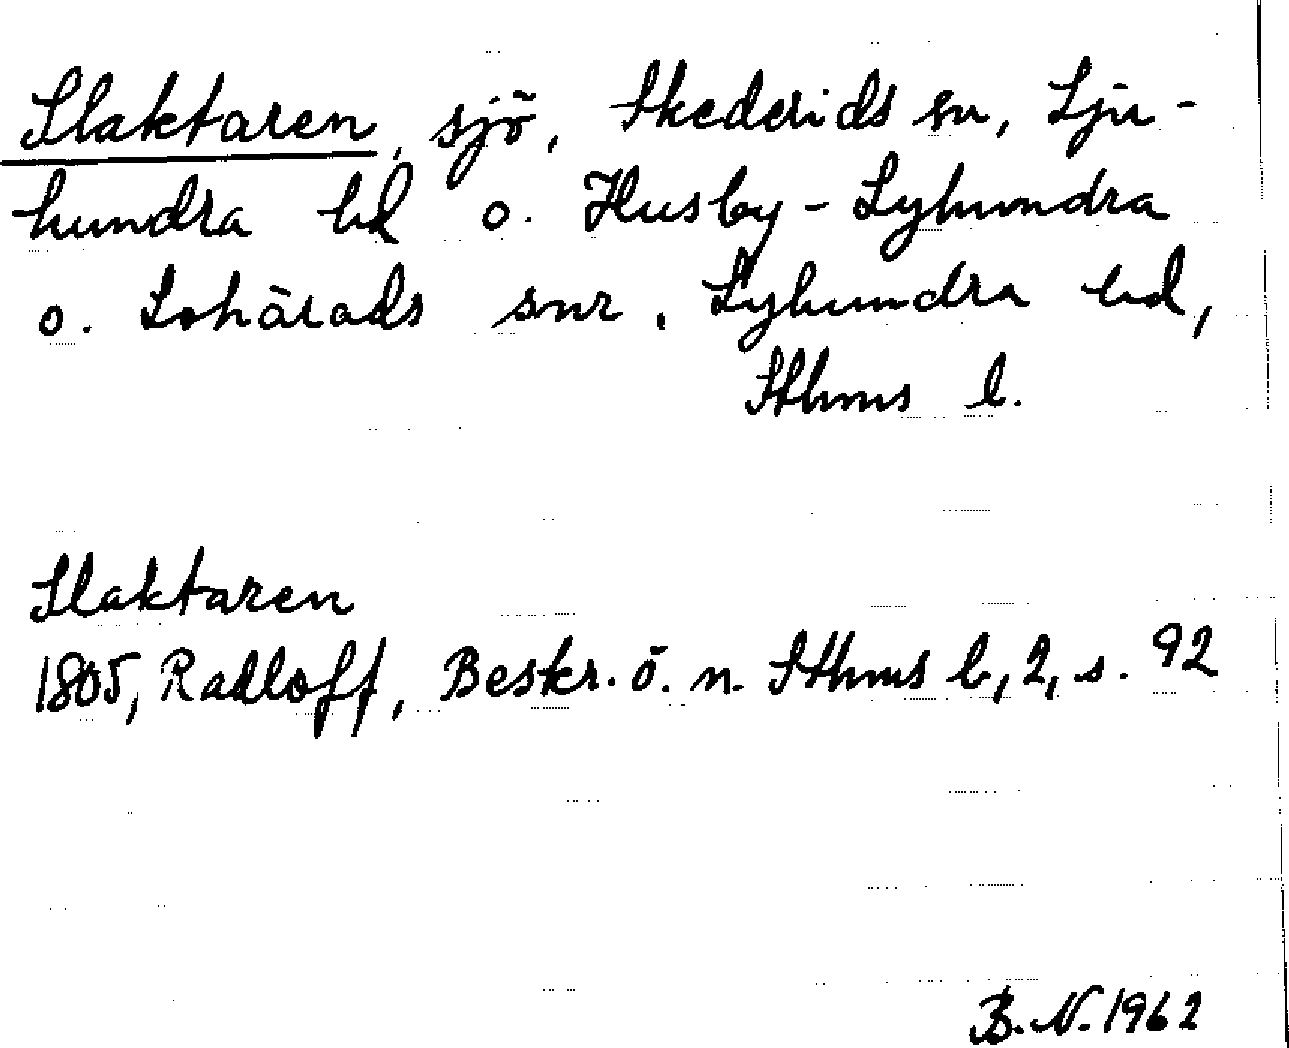 Slaktaren, sjö, Skederids sn, Sju-
hundra hd o. Husby-Lyhundra
o. Lohärads snr, Lyhundra hd,
Sthms l.
Slaktaren
1805, Radloff, Beskr. ö. n. Sthms l, 2, s. 92
B.N. 1962